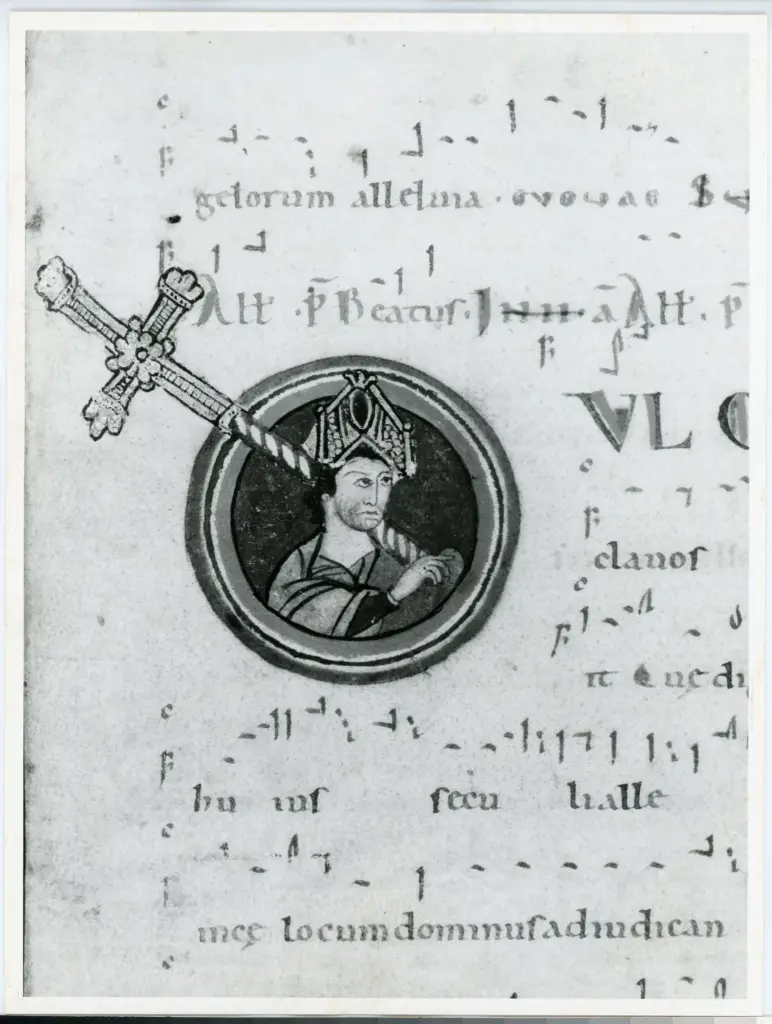 gelorum alleluia · euouae
All · p̄ Beatus. Inn ā All. p̄
VL
clauos
Quędi
hu ius secu li alle
incę locum dominus adiudican